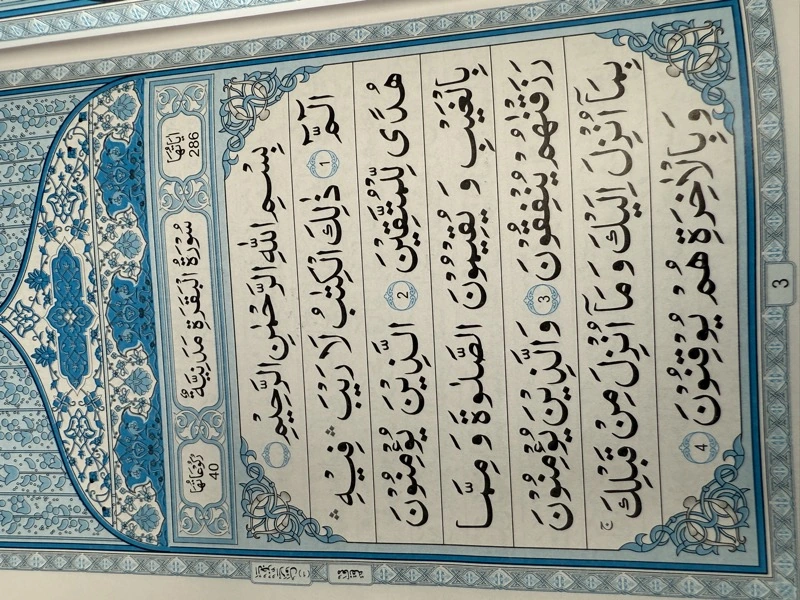 اٰيَاتُهَا 286
سُوْرَةُ الْبَقَرَةِ مَدَنِيَّةٌ
رُكُوْعَاتُهَا 40
بِسْمِ اللّٰهِ الرَّحْمٰنِ الرَّحِيْمِ
الٓمّٓ 1 ذٰلِكَ الْكِتٰبُ لَا رَيْبَ ۛ فِيْهِ ۛ
هُدًى لِّلْمُتَّقِيْنَ 2 الَّذِيْنَ يُؤْمِنُوْنَ
بِالْغَيْبِ وَ يُقِيْمُوْنَ الصَّلٰوةَ وَ مِمَّا
رَزَقْنٰهُمْ يُنْفِقُوْنَ 3 وَالَّذِيْنَ يُؤْمِنُوْنَ
بِمَآ اُنْزِلَ اِلَيْكَ وَ مَآ اُنْزِلَ مِنْ قَبْلِكَ ۚ
وَ بِالْاٰخِرَةِ هُمْ يُوْقِنُوْنَ 4
3